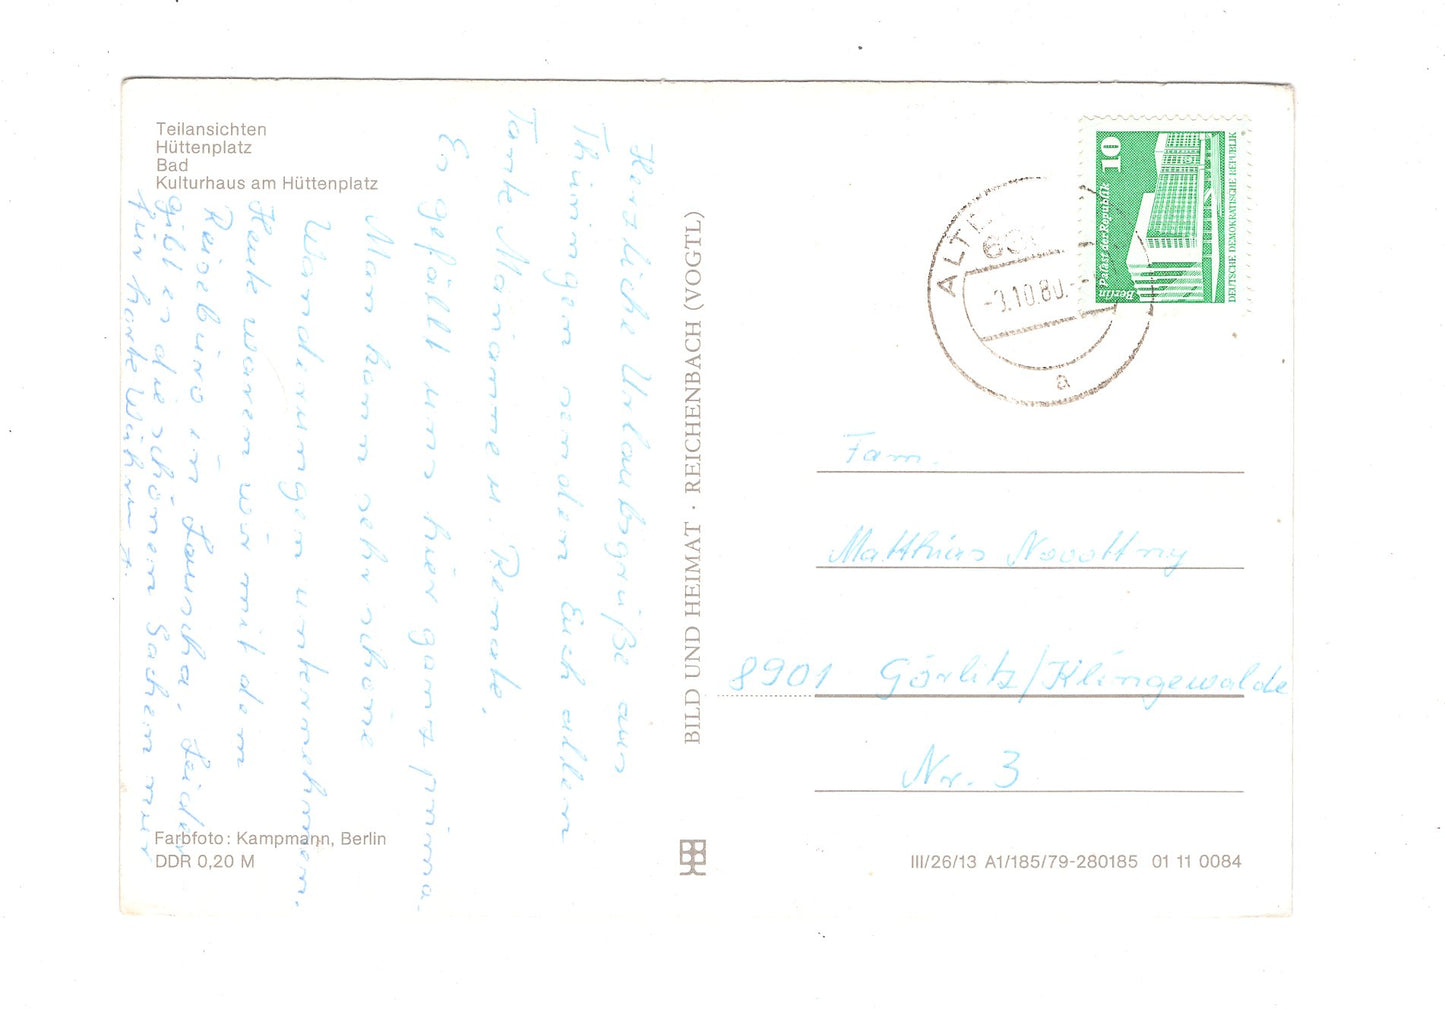 Teilansichten
Hüttenplatz
Bad
Kulturhaus am Hüttenplatz
Herzliche Urlaubsgrüße aus
Thüringen senden Euch allen
Tante Marianne u. Renate.
Es gefällt uns hier ganz prima.
Man kann sehr schöne
Wanderungen unternehmen.
Heute waren wir mit dem
Reisebüro in Lauscha, leider
gibt es die schönen Sachen nur
für harte Währung.
Farbfoto: Kampmann, Berlin
DDR 0,20 M
BILD UND HEIMAT · REICHENBACH (VOGTL)
10
Berlin Palast der Republik
DEUTSCHE DEMOKRATISCHE REPUBLIK
.10.80.
a
Fam.
Matthias Novottny
8901 Görlitz/Klingewalde
Nr. 3
III/26/13 A1/185/79-280185 01 11 0084